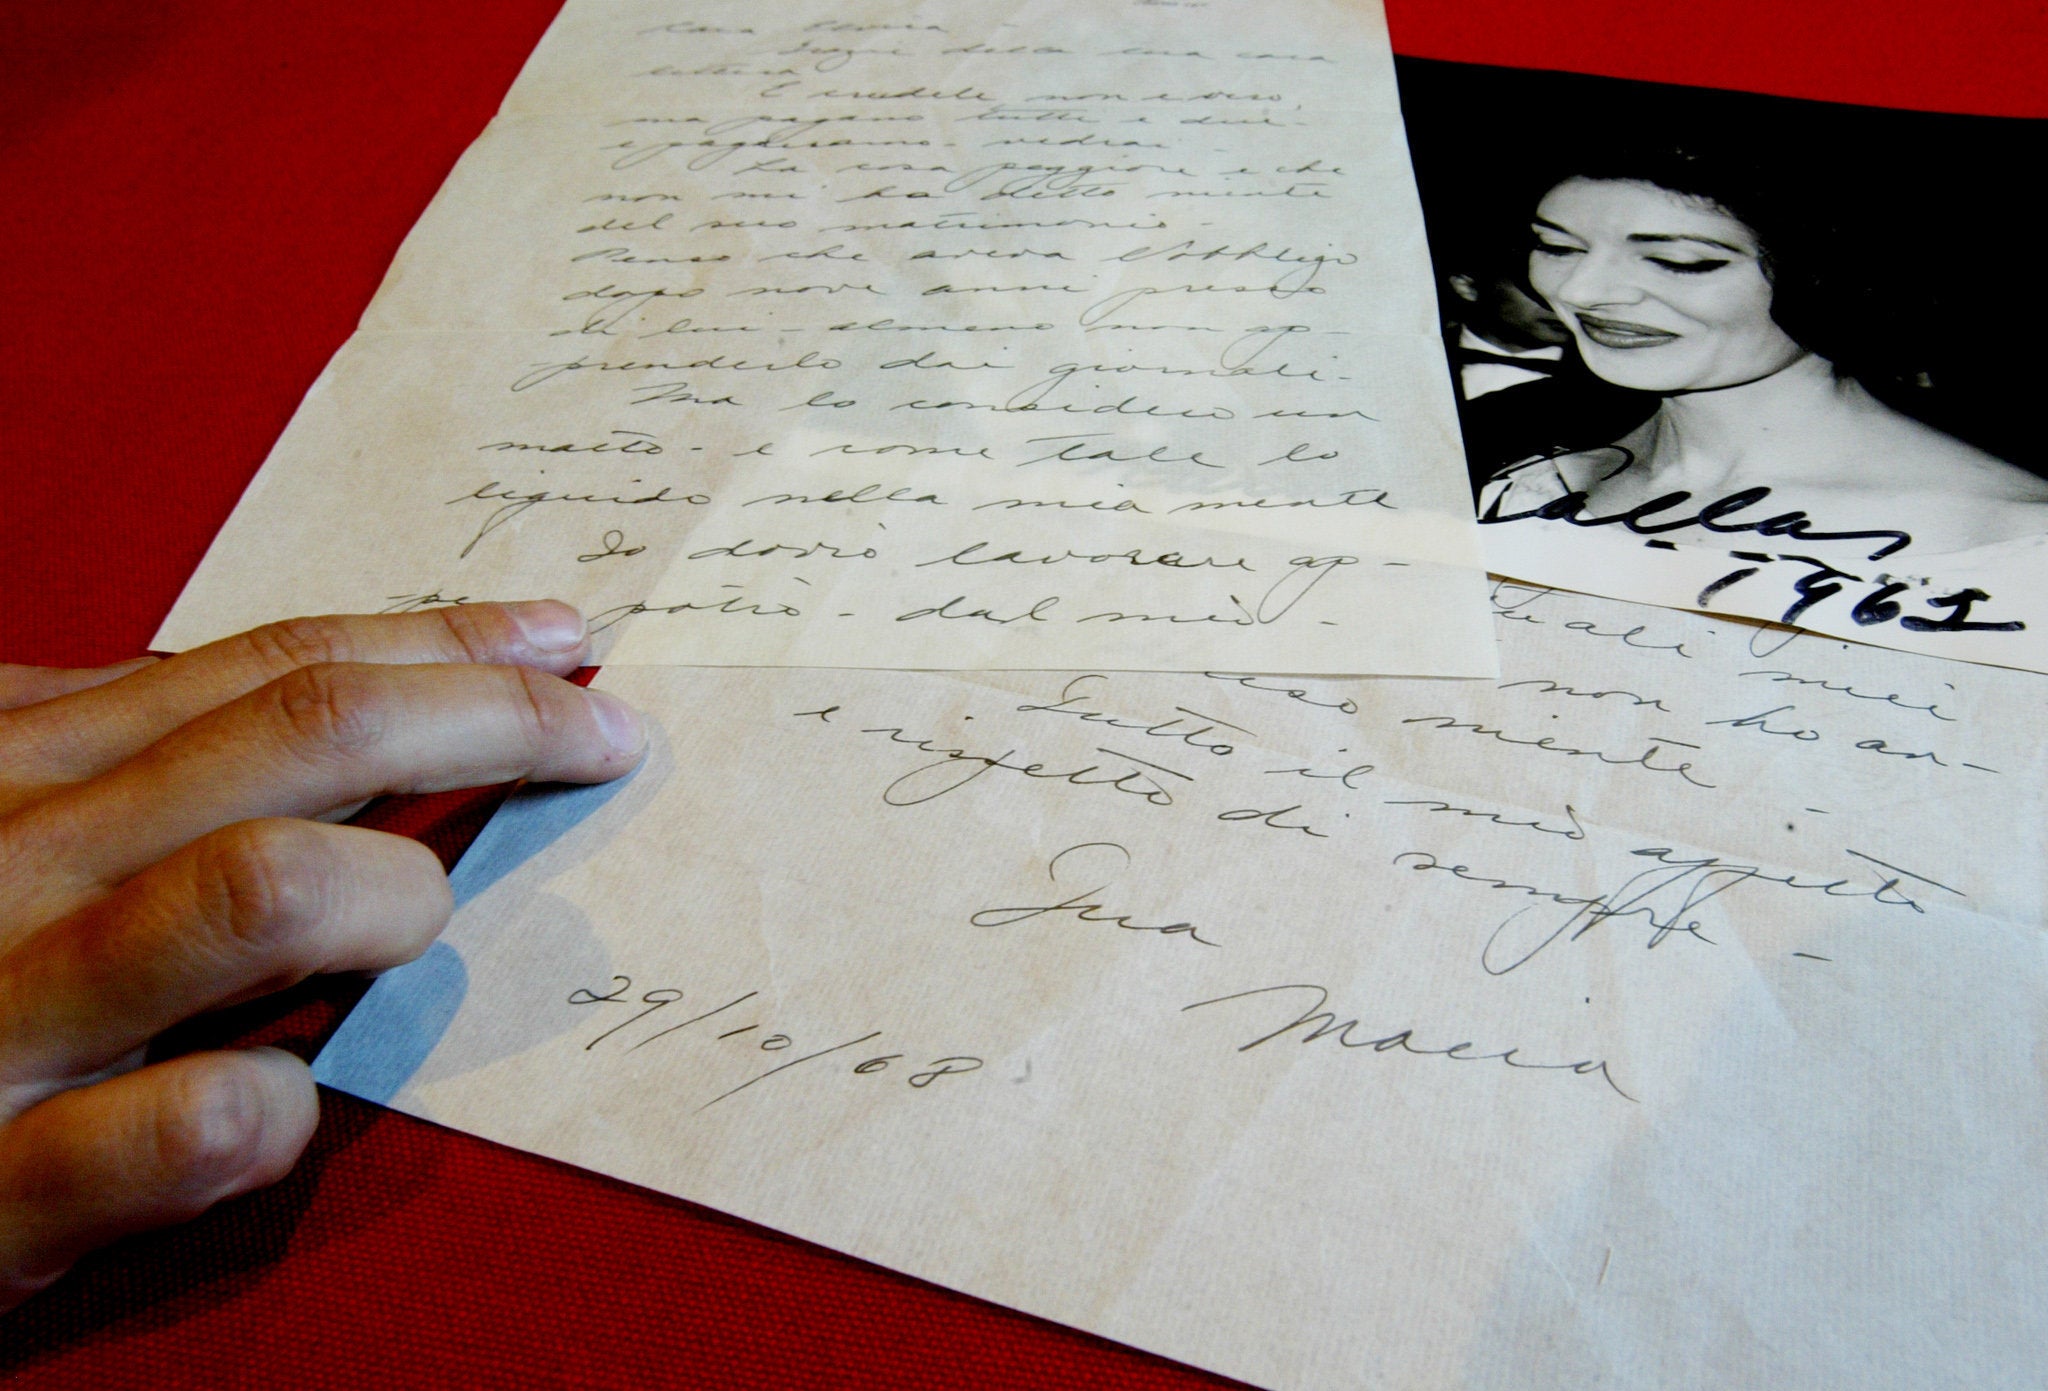 Cara Elvira -
Grazie della tua cara
lettera
E crudele non e vero,
ma pagano tutti e due -
e pagheranno - vedrai -
La cosa peggiore e che
non mi ha detto niente
del suo matrimonio -
Penso che aveva l'obbligo
dopo nove anni presso
di lui - almeno non ap-
prenderlo dai giornali -
Ma lo considero un
matto - e come tale lo
liquido nella mia mente
Io dovrò lavorare ap-
potrò - dal mio -
quali miei
non ho an-
niente -
Tutto il mio affetto
e rispetto di sempre -
Tua
Maria
29/10/68
Callas